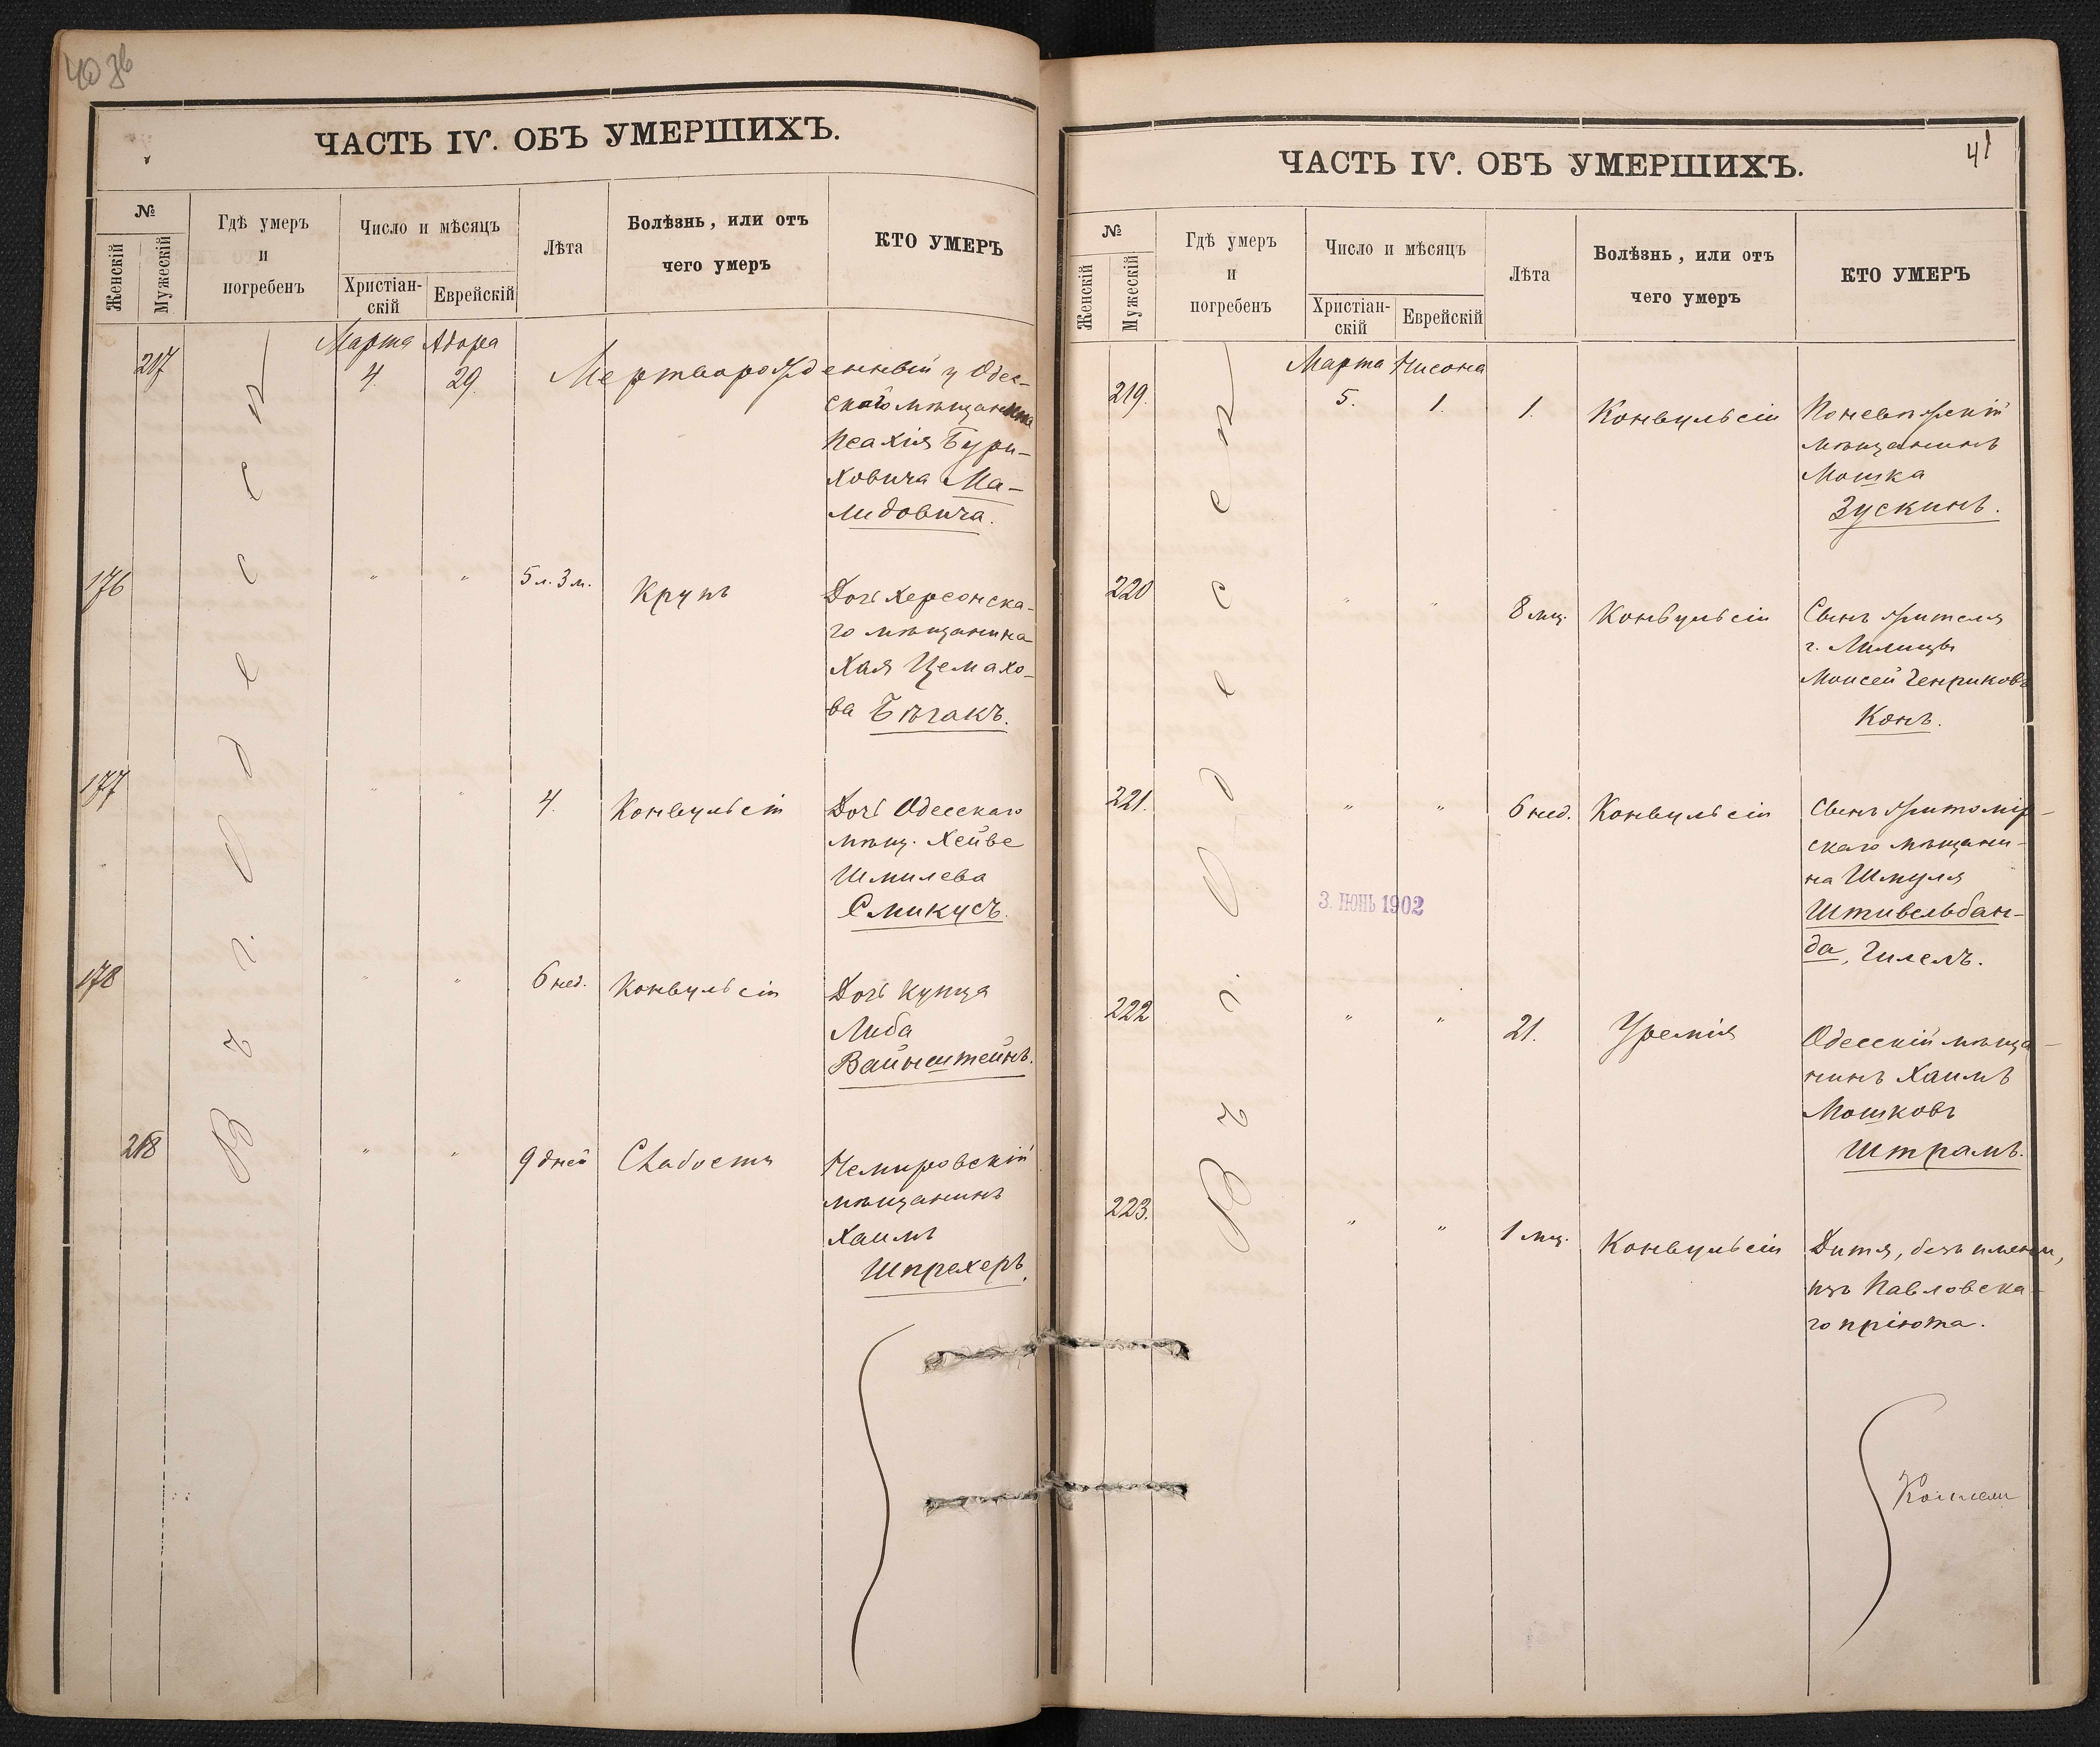 40 об
ЧАСТЬ IV. ОБЪ УМЕРШИХЪ.
№
Женскій
Мужескій
Гдѣ умеръ
и
погребенъ
Число и мѣсяцъ
Христіан-
скій
Еврейскій
Лѣта
Болѣзнь, или отъ
чего умеръ
КТО УМЕРЪ
Въ г. Одессѣ
Марта Адора
217 4. 29. Мертворожденный у Одес-
скаго мѣщанина
Псахія Бури-
ховича Ма-
лидовича.
176 " " 5 л. 3 м. Крупъ Дочь Херсонска-
го мѣщанина
Хая Цемахо-
ва Бѣгакъ.
177 " " 4. Конвульсіи Дочь Одесскаго
мѣщ. Хейве
Шмилева
Смикусъ.
178 " " 6 нед. Конвульсіи Дочь купца
Либа
Вайнштейнъ.
218 " " 9 дней Слабость Немировскій
мѣщанинъ
Хаимъ
Шпрехеръ.
41
ЧАСТЬ IV. ОБЪ УМЕРШИХЪ.
№
Женскій
Мужескій
Гдѣ умеръ
и
погребенъ
Число и мѣсяцъ
Христіан-
скій
Еврейскій
Лѣта
Болѣзнь, или отъ
чего умеръ
КТО УМЕРЪ
Въ г. Одессѣ
Марта Нисона
219. 5. 1. 1. Конвульсіи Поневѣжскій
мѣщанинъ
Мошка
Зускинъ.
220 " " 8 мц. Конвульсіи Сынъ жителя
г.
Моисей Генриковъ
Конъ.
221. " " 6 нед. Конвульсіи Сынъ Житомір-
скаго мѣщани-
на Шмуля
Штивельбан-
да, Гилелъ.
3. ІЮНЬ 1902
222 " " 21. Уремія Одесскій мѣща-
нинъ Хаимъ
Мошковъ
Штрамъ.
223. " " 1 мц. Конвульсіи Дитя, безъ имени,
изъ Павловска-
го пріюта.